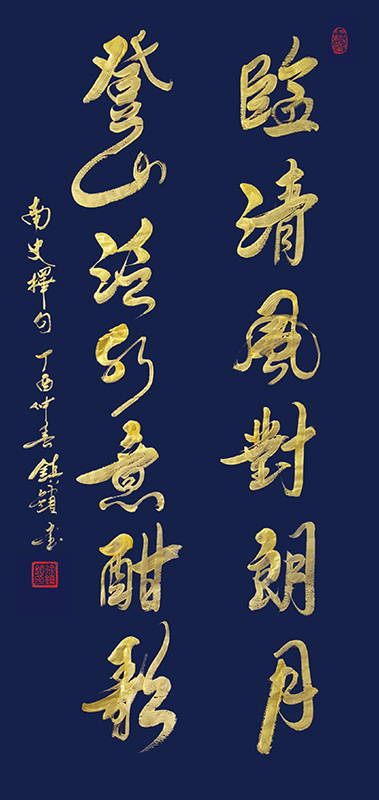 臨清風對朗月
登山意酣歌
南史擇句 丁酉仲春 鎮書